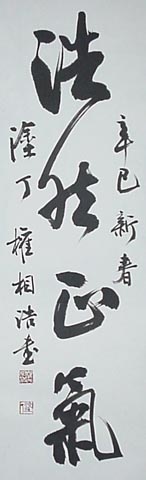 浩然正氣
辛巳新春
塗丁 權相浩書